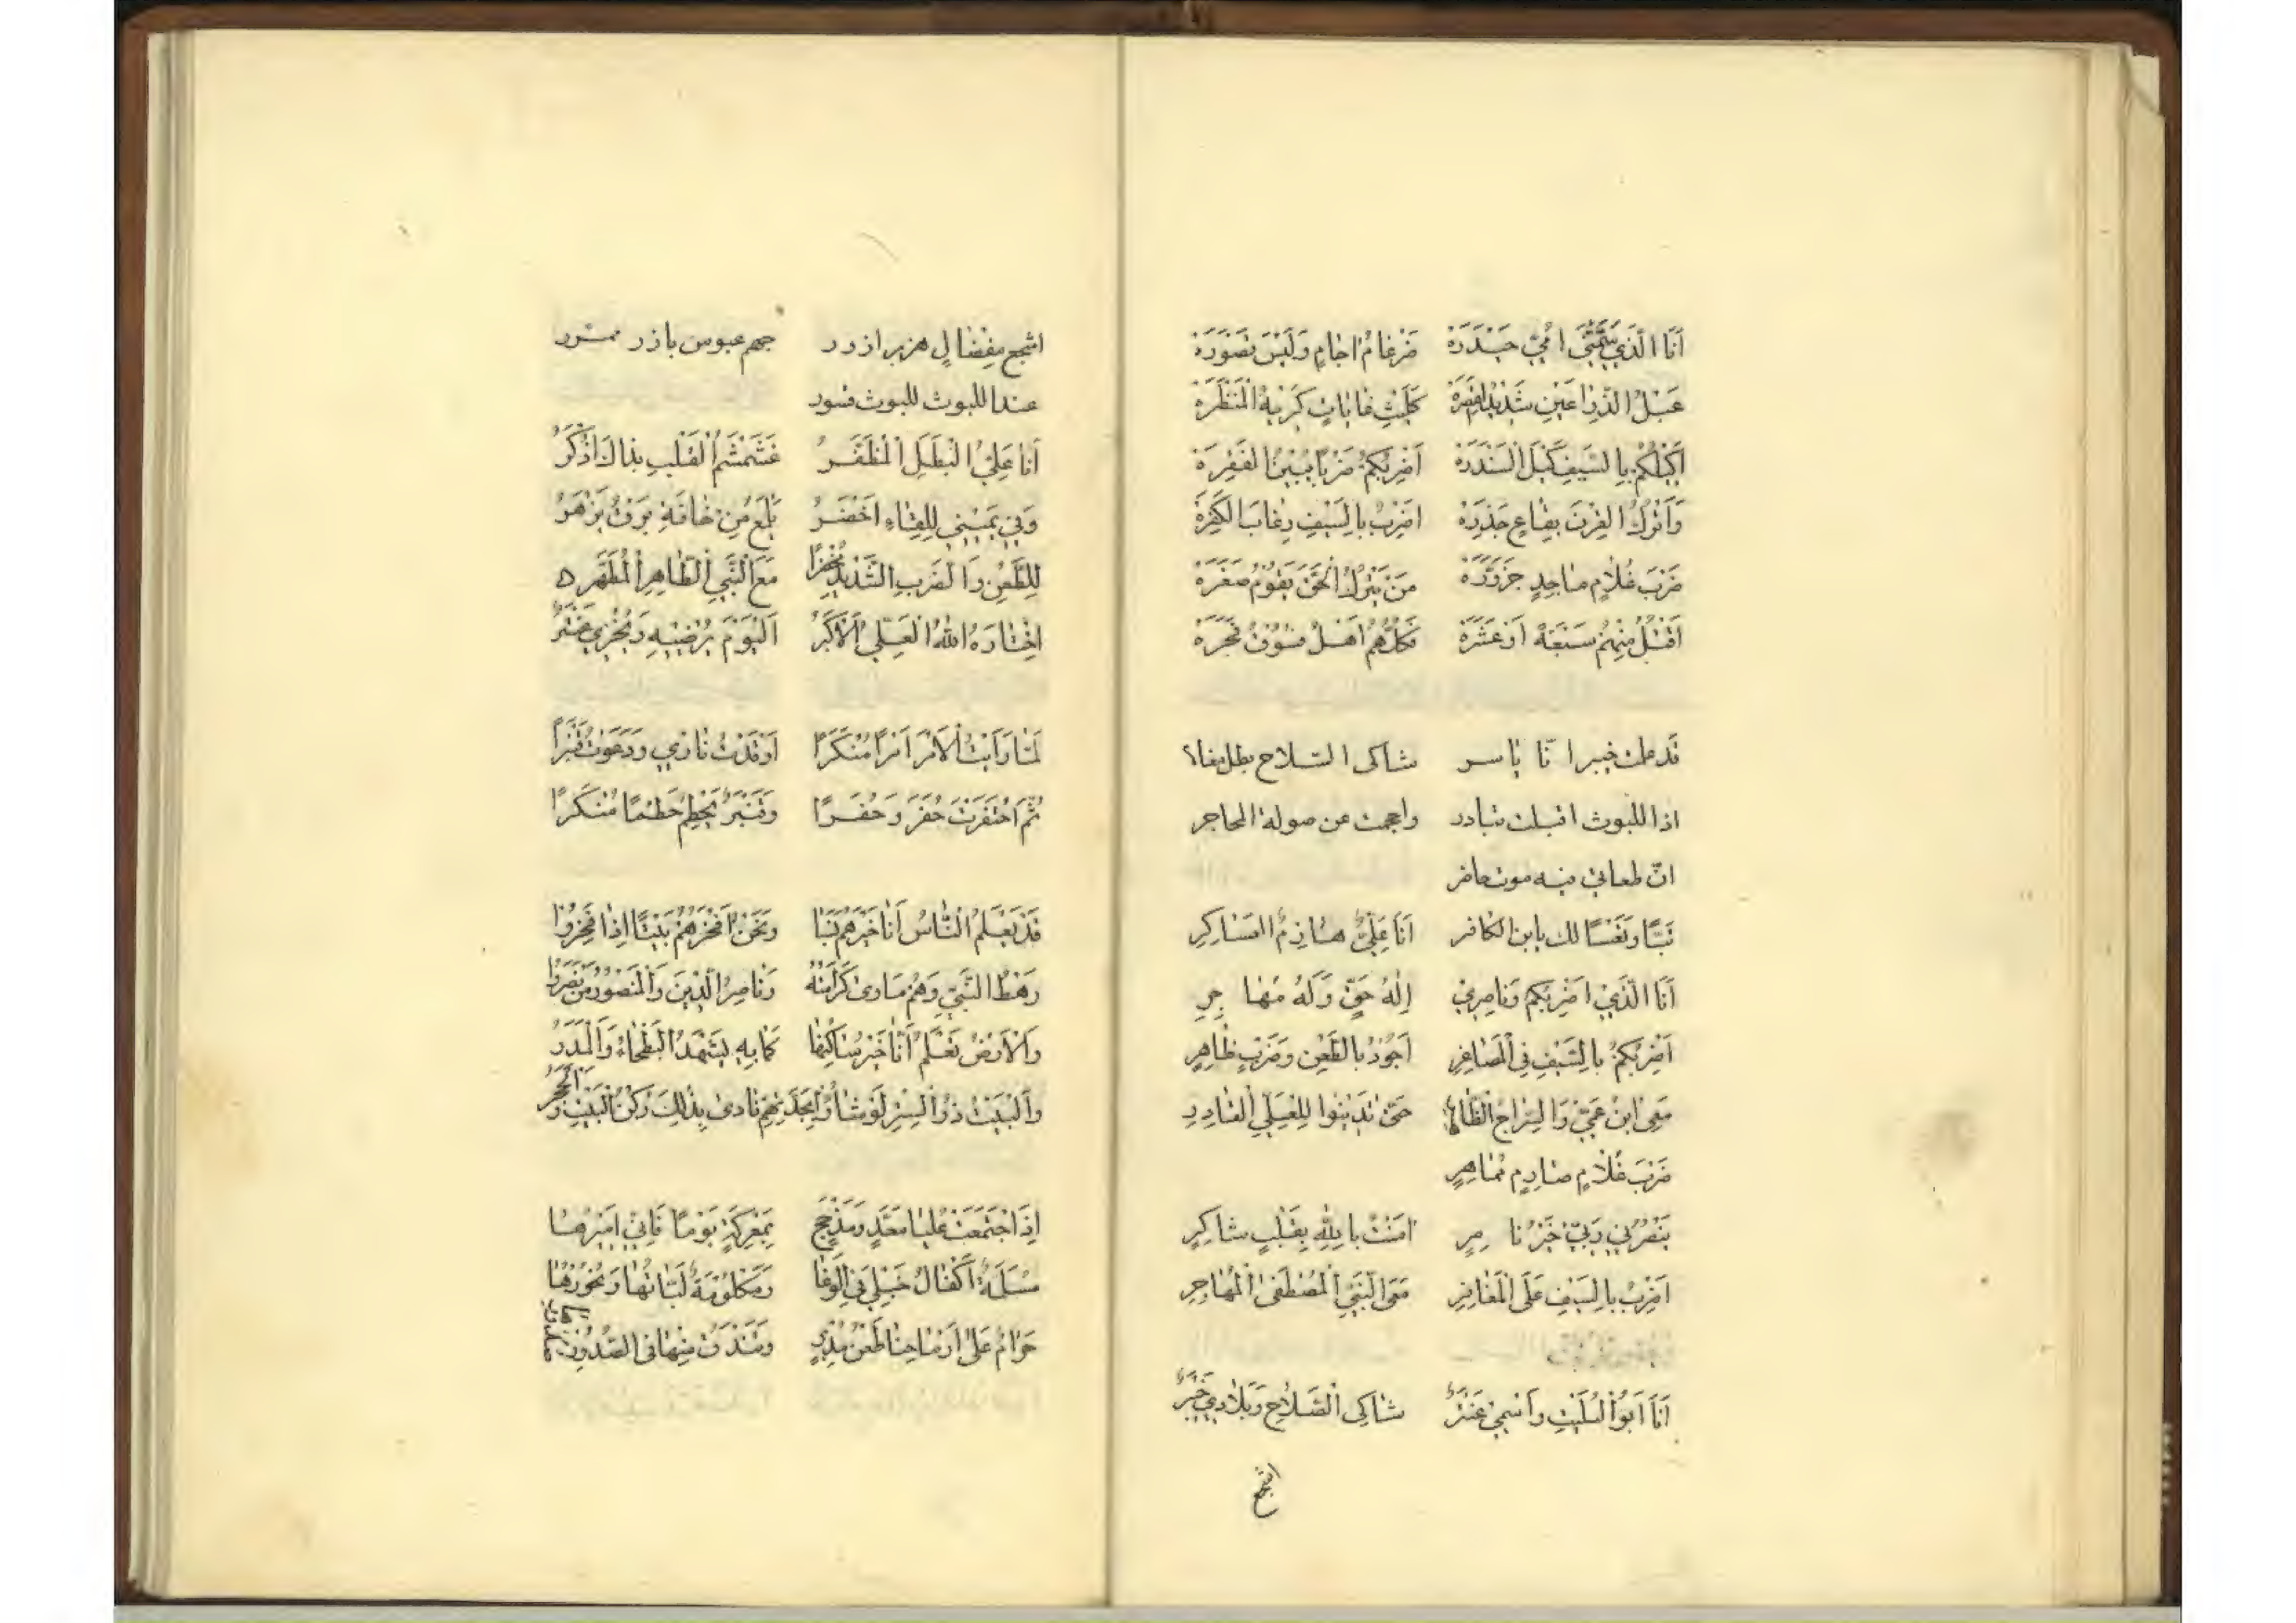 أَنَا الَّذِي سَمَّتْنِي أُمِّي حَيْدَرَةْ ضَرْغَامُ اجَامٍ وَلَيْسَ قَسْوَرَةْ
عَبْلُ الذِّرَاعَيْنِ شَدِيدُ القَصَرَةْ كَلَيْثِ غَابَاتٍ كَرِيهِ الْمَنْظَرَةْ
أَكِيلُكُمْ بِالسَّيْفِ كَيْلَ السَّنْدَرَةْ أَضْرِبُكُمْ ضَرْبًا يُبِينُ الفَقِرَةْ
وَأَتْرُكُ القِرْنَ بِقَاعٍ جَذَرَةْ اضْرِبُ بِالسَّيْفِ رِقَابَ الكَفَرَةْ
ضَرْبَ غُلَامٍ مَاجِدٍ حَزَوَّرَةْ مَنْ يَتْرُكُ الْحَقَّ يَقُومُ صَغَرَةْ
أَقْتُلُ مِنْهُمْ سَبْعَةً أَوْ عَشَرَةْ فَكُلُّهُمْ أَهْلُ فُسُوقٍ فَجَرَةْ
قد علمت خيبر انّا ياسر شاكى السّلاح بطل مغا
اذا الليوث اقبلت تبادر واحجمت عن صولة المحاجر
انّ طعانى فيه موت حاضر
تَبًّا وَتَعْسًا لك يابن الكافر أَنَا عَلِيٌّ هَازِمُ العَسَاكِرِ
أَنَا الَّذِي اضْرِبُكُمْ وَنَاصِرِي إِلٰهُ حَقٍّ وَلَهُ مُهَاجِرِ
أَضْرِبُكُمْ بِالسَّيْفِ فِي الْمَصَاغِرِ أَجُودُ بِالطَّعْنِ وَضَرْبٍ ظَاهِرِ
مَعِي ابْنُ عَمِّي وَالسِّرَاجُ الظَّاهِرِ حَتَّى تَدِينُوا لِلْعَلِيِّ القَادِرِ
ضَرْبَ غُلَامٍ صَارِمٍ مُمَاهِرِ
يَنْصُرُنِي رَبِّي خَيْرُ نَاصِرِ امَنْتُ بِاللهِ بِقَلْبٍ شَاكِرِ
اضْرِبُ بِالسَّيْفِ عَلَى الْمَغَافِرِ مَعَ النَّبِيِّ الْمُصْطَفَى الْمُهَاجِرِ
أَنَا أَبُو الْبُلَيْتِ وَاسْمِي عَنْتَرُ شَاكِي السِّلَاحِ وَبِلَادِي خَيْبَرُ
اشجع
اشجع مِفْضَالٍ هزبر ازور جهم عبوس باذر
عند الليوث لليوث قسور
أَنَا عَلِيُّ البَطَلُ الْمُظَفَّرُ غَشَمْشَمُ الْقَلْبِ بِذَاكَ أُذْكَرُ
وَفِي يَمِينِي لِلِّقَاءِ أَخْضَرُ يَلْمَعُ مِنْ حَافَةِ بَرْقٌ يَزْهَرُ
لِلطَّعْنِ وَالضَّرْبِ الشَّدِيدِ مُحْضَرًا مَعَ النَّبِيِّ الطَّاهِرِ الْمُطَهَّرِ ه
اخْتَارَهُ اللهُ الْعَلِيُّ الْأَكْبَرُ اَلْيَوْمَ يُرْضِيهِ وَيُخْزِي عَنْتَرُ
لَمَّا رَأَيْتُ الْأَمْرَ أَمْرًا مُنْكَرًا أَوْقَدْتُ نَارِي وَدَعَوْتُ قَنْبَرًا
ثُمَّ احْتَفَرْتُ حُفَرَ وَحُفَرًا وَقَنْبَرٌ يَحْطِمُ حَطْمًا مُنْكَرًا
قَدْ يَعْلَمُ النَّاسُ أَنَا خَيْرُهُمْ نَسَبًا وَنَحْنُ أَفْخَرُهُمْ بَيْتًا إِذَا فَخِرُوا
رَهْطُ النَّبِيِّ وَهُمْ مَاوىٰ كَرَامَتِهِ وَنَاصِرُ الدِّينِ وَالْمَنْصُورُ مَنْ نَصَرُوا
وَالْأَرْضُ تَعْلَمُ أَنَّا خَيْرُ سَاكِنِهَا كَمَا بِهِ يَشْهَدُ الْبَطْحَاءُ وَالْمَدَرُ
وَالْبَيْتُ ذُو السِّتْرِ لَوْ شَاؤُا يُحَدِّثُهُمْ نَادىٰ بِذٰلِكَ رُكْنُ الْبَيْتِ وَالْحَجَرُ
إِذَا اجْتَمَعَتْ عُلْيَا مَعَدٍّ وَمَذْحِجٍ بِمَعْرَكَةٍ يَوْمًا فَإِنِّي أَمِيرُهَا
مُسَلَّمَةٌ أَكْفَالُ خَيْلِي فِي الْوَغَا وَمَكْلُومَةٌ لَبَّاتُهَا وَنُحُورُهَا
حَرَامٌ عَلَىٰ أَرْمَاحِنَا طَعْنُ مُدْبِرٍ وَتَنْدَقُّ مِنْهَا فى الصُّدُورِ